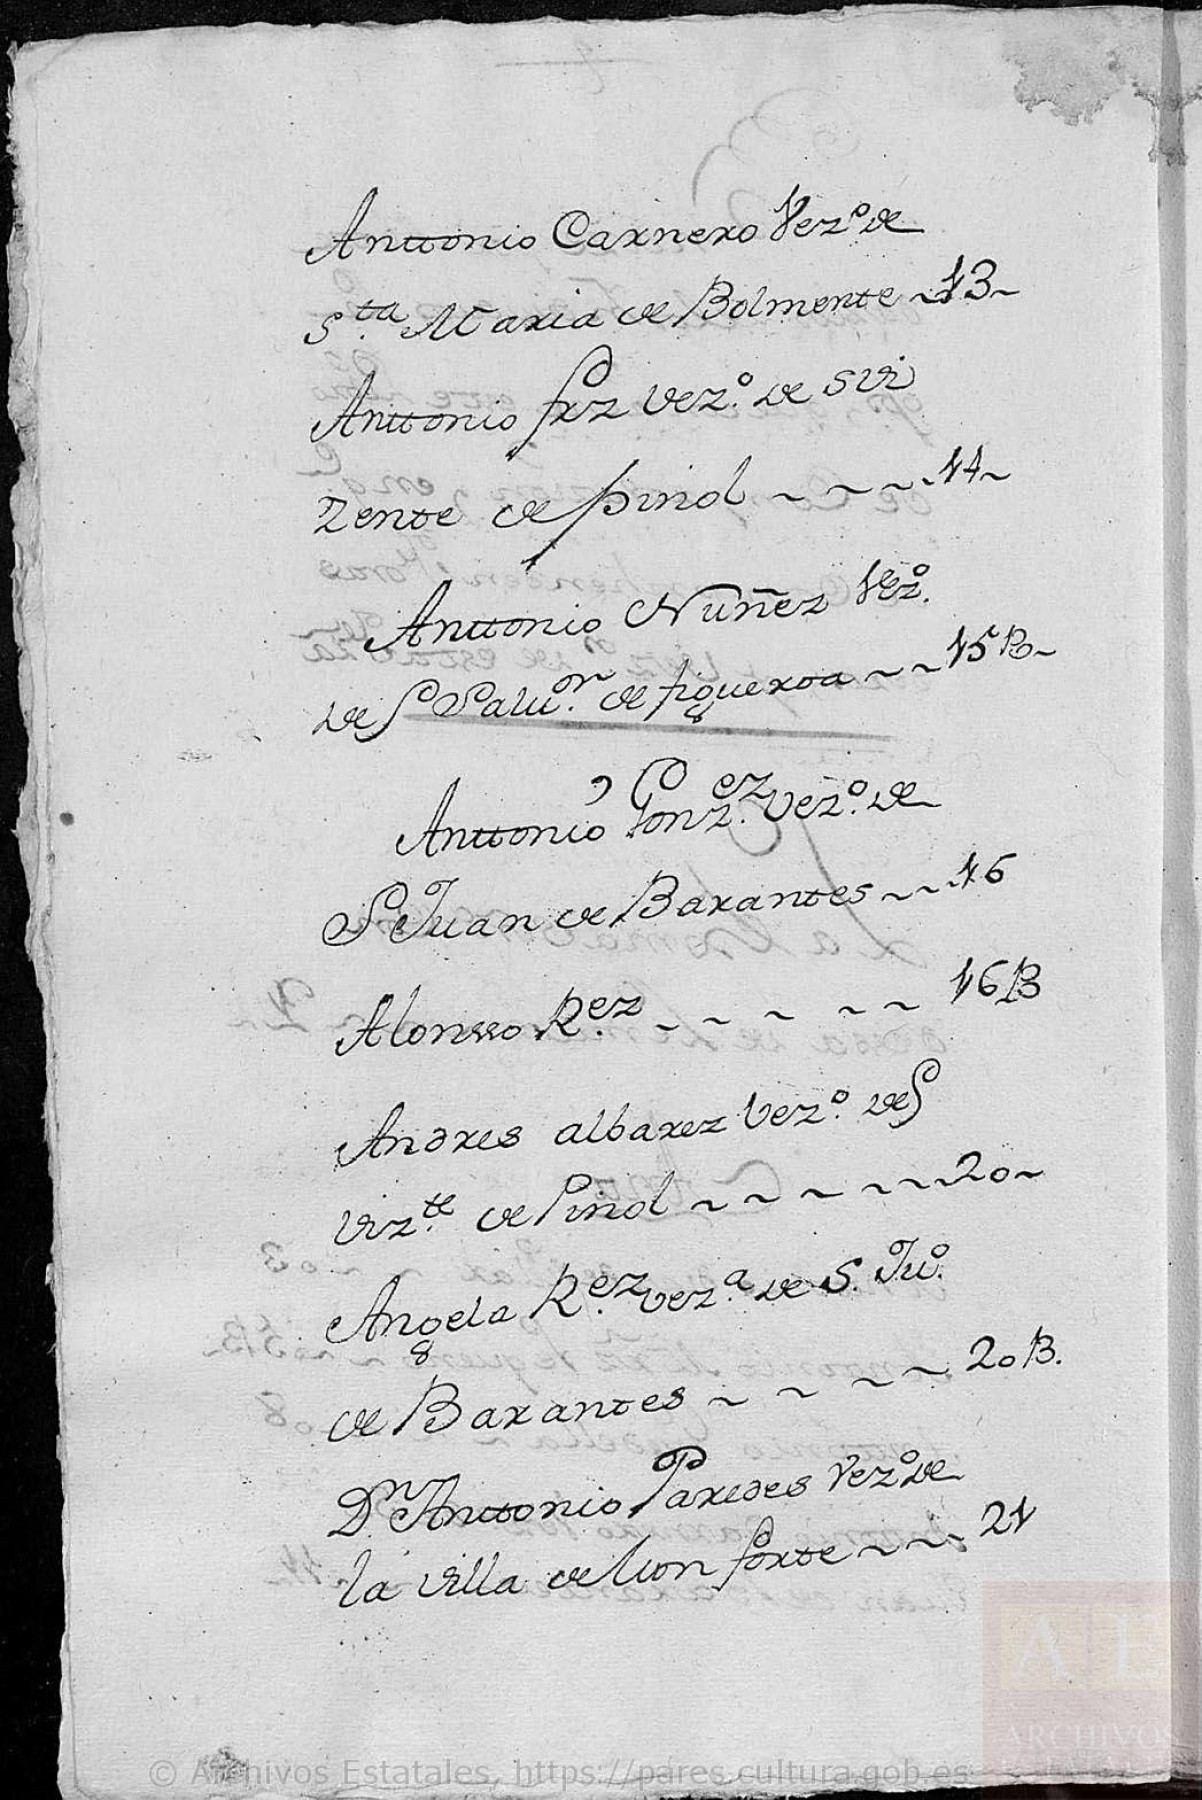 Anttonio Carnero Vez.º de
S.ta Maria de Bolmente ~ 13 ~
Anttonio frz vez.º de s vi
zente de pinol ~ ~ ~ ~ 14 ~
Anttonio Nuñez Vez.º
de S Salu.or de figueroa ~ ~ 15 B ~
Anttonio Gonz.ez vez.º de
S Juan de Barantes ~ ~ 16
Alonsso R.ez ~ ~ ~ ~ ~ ~ 16 B
Andres albarez Vez.º de S
Viz.te de Pinol ~ ~ ~ ~ ~ ~ 20 ~
Angela R.ez vez.a de S. Ju.º
de Barantes ~ ~ ~ ~ ~ 20 B.
D.n Anttonio Paredes Vez.º de
la villa de Monforte ~ ~ ~ 21
AE
ARCHIVOS
© Archivos Estatales, https://pares.cultura.gob.es